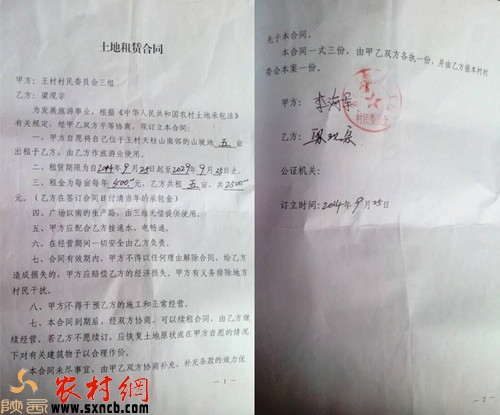 土地租赁合同
甲方：王村村民委员会三组
乙方：梁观宗
为发展旅游事业，根据《中华人民共和国农村土地承包法》
有关规定，经甲乙双方平等协商，现订立本合同：
一、甲方自愿将自己位于王村天柱山南邻的山坡地 五 亩
出租于乙方。由乙方作旅游业使用。
二、租赁期限为自2014年9月25日起至2029年9月25日止。
三、租金为每亩每年500元，乙方共租 五 亩，共2500
元。（乙方在签订合同日付清当年的承包金）
四、广场以南的生产路，由三组无偿提供使用。
五、甲方应配合乙方接通水、电畅通。
六、在经营期间一切安全由乙方负责。
七、合同有效期内，甲方不得以任何理由解除合同，给乙方
造成损失的，甲方应赔偿乙方的经济损失。甲方有义务排除地方
村民干扰。
八、甲方不得干预乙方的施工和正常经营。
七、本合同到期后，经双方协商，可以续租合同，由乙方继
续经营。若乙方不愿续订，应恢复土地原状或在甲方自愿的情况
下对有关建筑物予以合理作价。
本合同未尽事宜，由甲乙双方协商补充，补充条款的效力优
- 1 -
先于本合同。
本合同一式三份，由甲乙双方各执一份，并由乙方报本村村
委会本案一份。
甲方：
村民委员会
乙方：
公证机关：
订立时间：2014年9月25日
- 2 -
陕西
农村网
www.sxncb.com